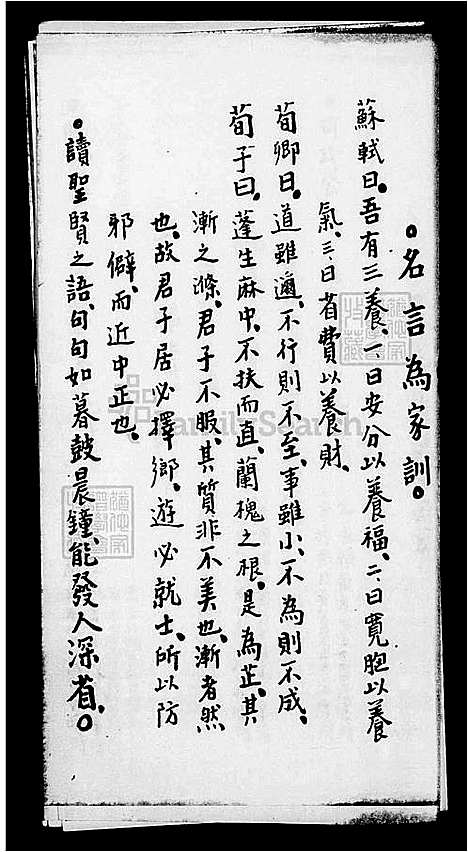 。名言為家訓。
蘇軾曰。吾有三養、一、曰安分以養福、二、曰寬胞以養
氣、三、曰省費以養財、
荀卿曰。道雖邇、不行則不至、事雖小、不為則不成、
荀子曰、蓬生麻中、不扶而直、蘭槐之根、是為芷、其
漸之滫、君子不服、其質非不美也、漸者然
也、故君子居必擇鄉、遊必就士、所以防
邪僻、而近中正也、
。讀聖賢之語、句句如暮鼓晨鐘、能發人深省。
FamilySearch